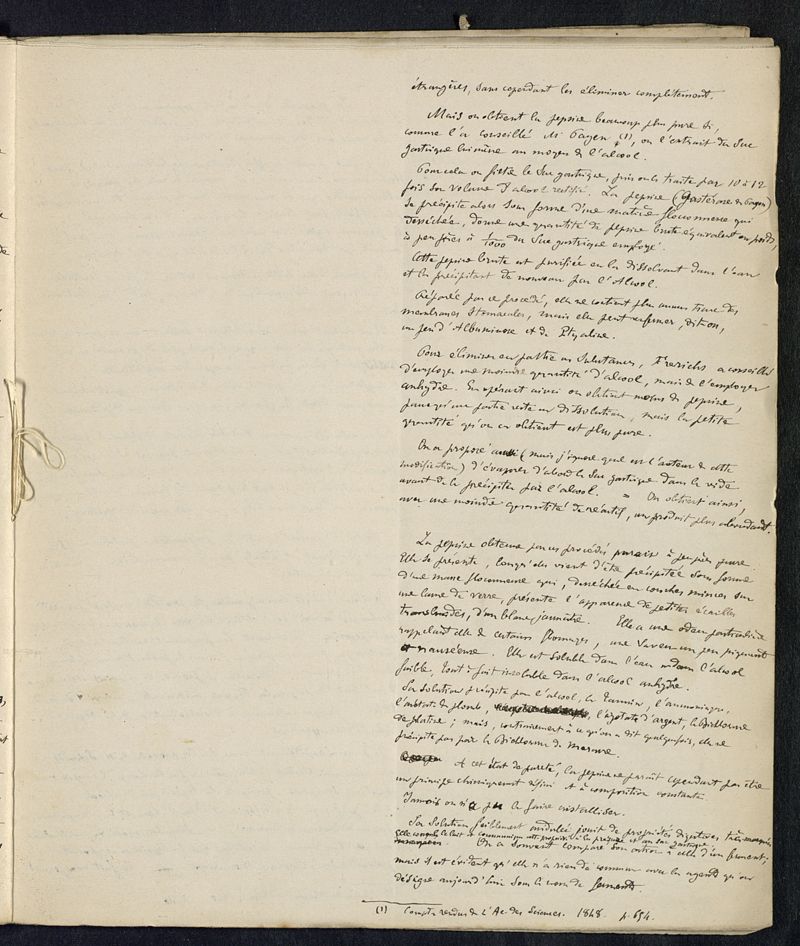 étrangères, sans cependant les éliminer complètement.
Mais on obtient la pepsine beaucoup plus pure si,
comme l'a conseillé Mr Payen (1), on l'extrait du Suc
gastrique lui même au moyen de l'alcool.
Pour cela on filtre le Suc gastrique, puis on le traite par 10 à 12
fois son volume d'alcool rectifié. La pepsine (Gastérase de Payen)
se précipite alors sous forme d'une matière floconneuse qui
desséchée, donne une quantité de pepsine brute équivalent en poids,
à peu près à 1/1000 du Suc gastrique employé.
Cette pepsine brute est purifiée en la dissolvant dans l'eau
et la précipitant de nouveau par l'Alcool.
Préparée par ce procédé, elle ne contient plus aucune trace des
membranes stomacales, mais elle peut renfermer, dit-on,
un peu d'Albuminose et de Ptyaline.
Pour éliminer en partie ces substances, Frerichs a conseillé
d'employer une moindre quantité d'alcool, mais de l'employer
anhydre. En opérant ainsi on obtient moins de pepsine,
parce qu'une partie reste en dissolution, mais la petite
quantité qu'on en obtient est plus pure.
On a proposé aussi (mais j'ignore quel est l'auteur de cette
modification) d'évaporer d'abord le Suc gastrique dans le vide
avant de le précipiter par l'alcool. = On obtient ainsi,
avec une moindre quantité de réactif, un produit plus abondant.
La pepsine obtenue par ces procédés parait à peu près pure.
Elle se présente, lorsqu'elle vient d'être précipitée sous forme
d'une masse floconneuse qui, desséchée en couches minces sur
une lame de verre, présente l'apparence de petites écailles
translucides, d'un blanc jaunâtre. Elle a une odeur particulière
rappelant celle de certains fromages, une saveur un peu piquante
et nauséeuse. Elle est soluble dans l'eau et dans l'alcool
faible, tout à fait insoluble dans l'alcool anhydre.
Sa solution précipite par l'alcool, le Tannin, l'ammoniaque,
l'acétate de plomb, l'azotate d'argent, le Bichlorure
de platine ; mais, contrairement à ce qu'on a dit quelquefois, elle ne
précipite pas par le Bichlorure de Mercure.
A cet état de pureté, la pepsine ne parait cependant pas être
un principe chimiquement défini et à composition constante.
Jamais on n'a pu la faire cristalliser.
Sa solution faiblement acidulée jouit de propriétés digestives très marquées
Elle coagule le lait et communique cette propriété à la présure et au suc gastrique.
On a souvent comparé son action à celle d'un ferment,
mais il est évident qu'elle n'a rien de commun avec les agents qu'on
désigne aujourd'hui sous le nom de ferments.
(1) Compte rendus de l'Ac. des Sciences. 1848 p. 654.